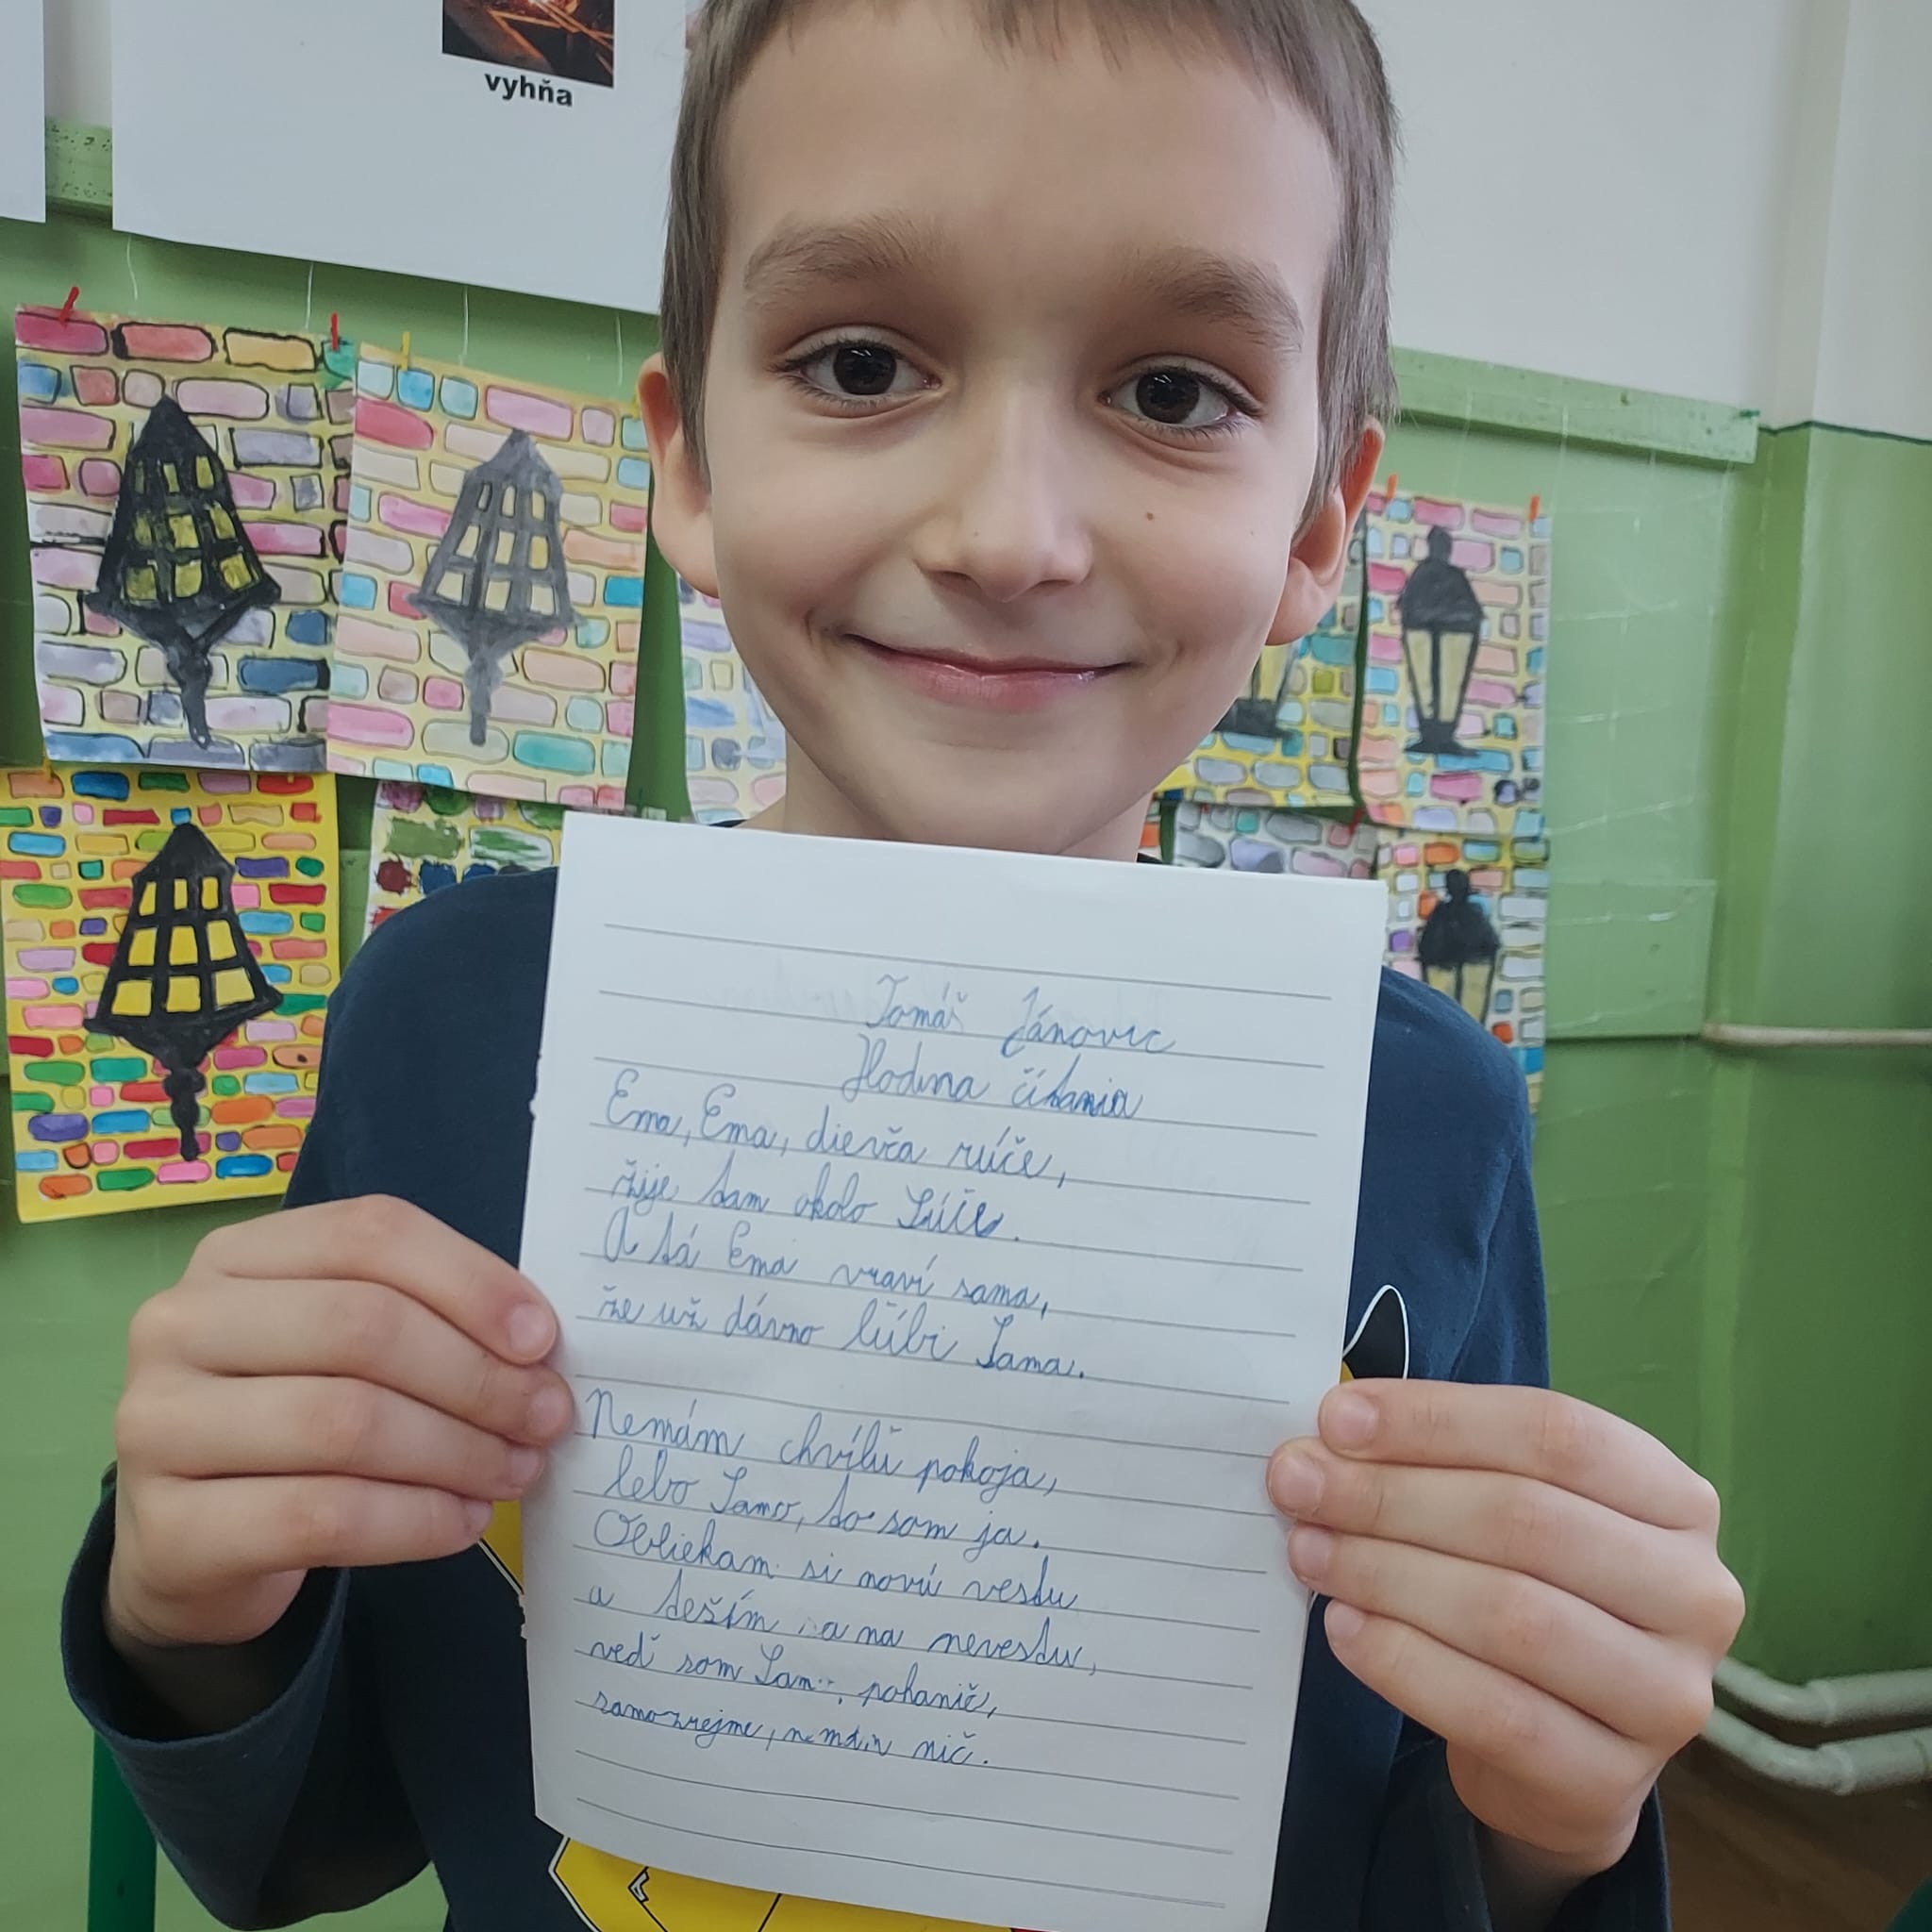 vyhňa
Tomáš Jánovic
Hodina čítania
Ema, Ema, dievča rúče,
žije tam okolo Lúče.
A tá Ema vraví sama,
že už dávno ľúbi Sama.
Nemám chvíľu pokoja,
lebo Samo, to som ja.
Obliekam si novú vestu
a teším sa na nevestu,
veď som Samo, pohanič,
samozrejme, nemám nič.